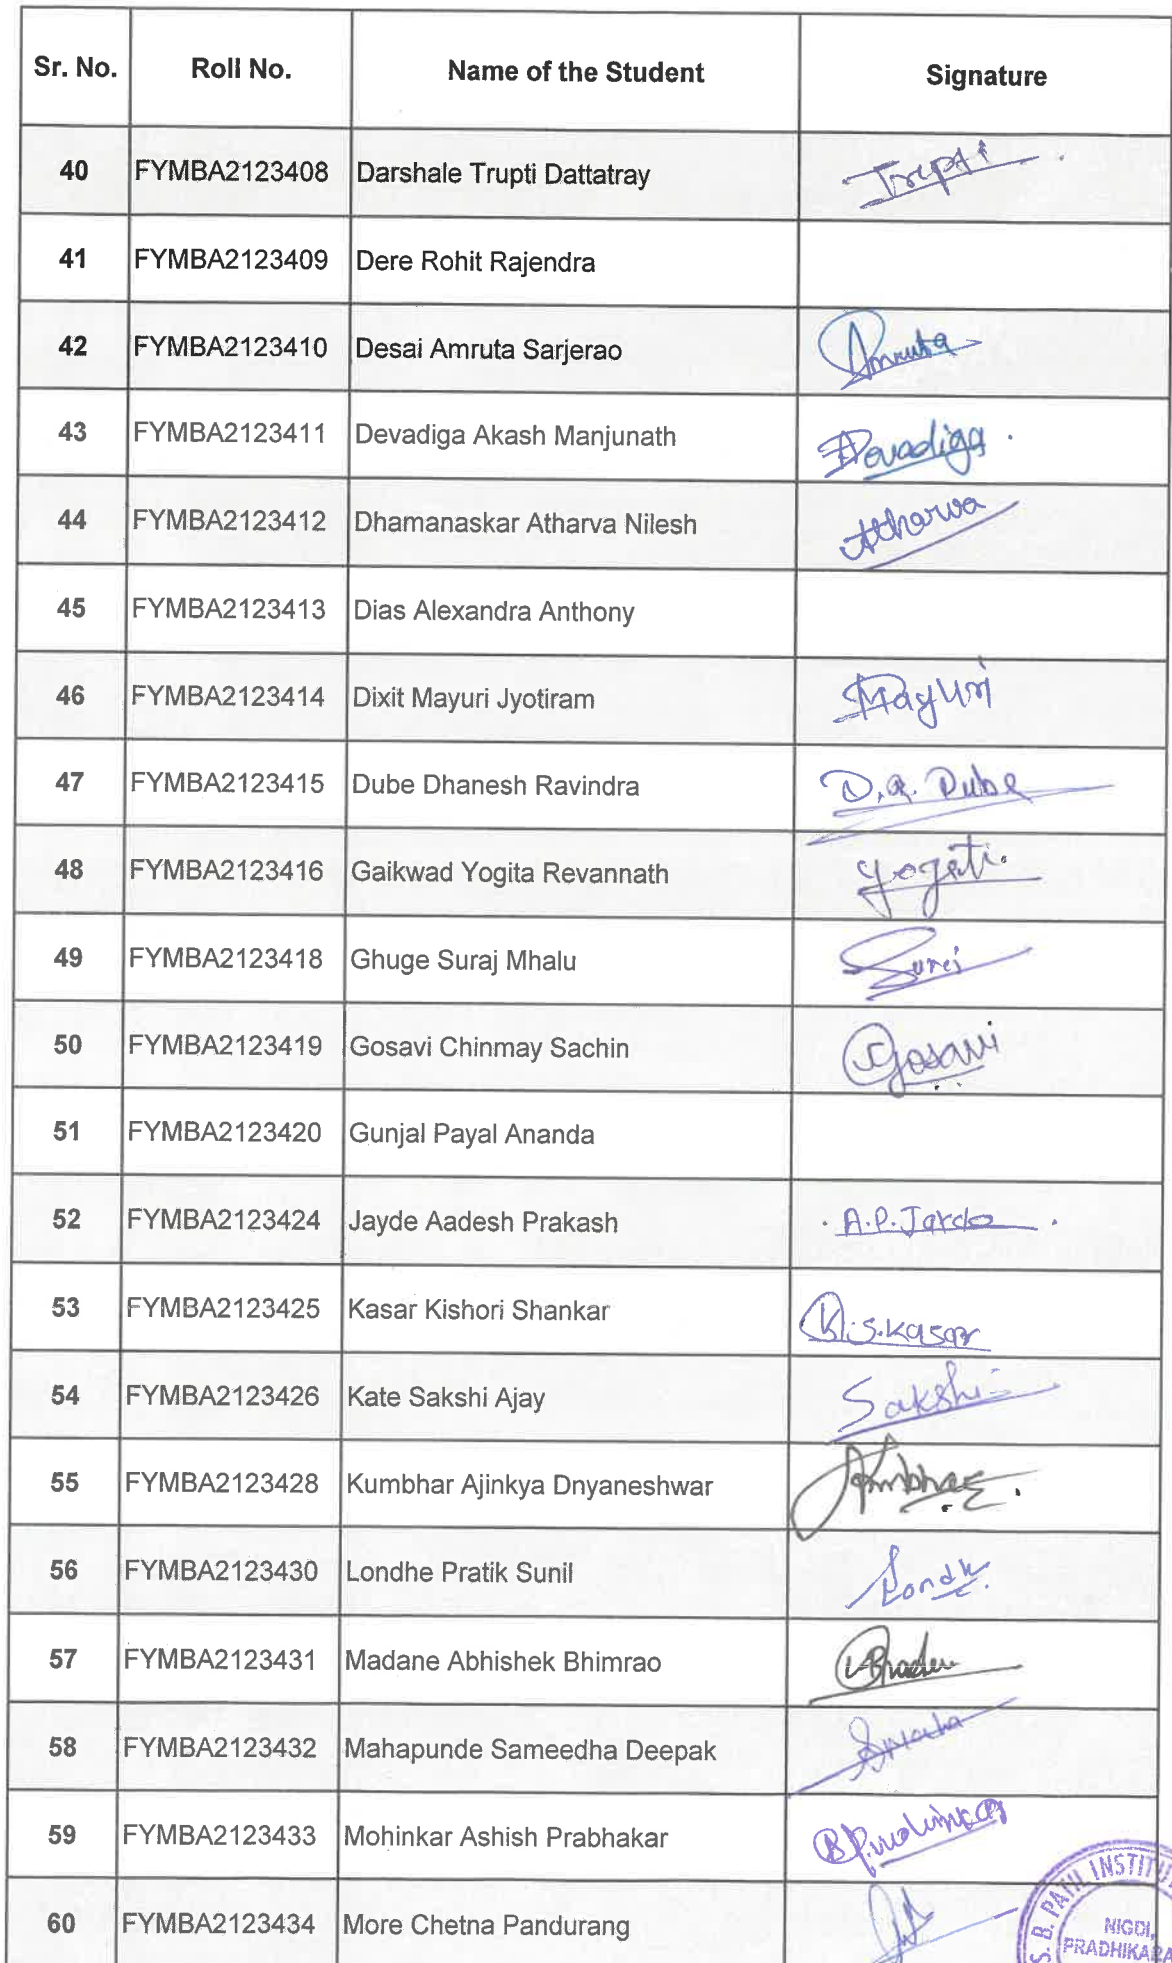 Sr. No. Roll No. Name of the Student Signature
40 FYMBA2123408 Darshale Trupti Dattatray Trupti
41 FYMBA2123409 Dere Rohit Rajendra
42 FYMBA2123410 Desai Amruta Sarjerao Amruta
43 FYMBA2123411 Devadiga Akash Manjunath Devadiga
44 FYMBA2123412 Dhamanaskar Atharva Nilesh Atharva
45 FYMBA2123413 Dias Alexandra Anthony
46 FYMBA2123414 Dixit Mayuri Jyotiram Mayuri
47 FYMBA2123415 Dube Dhanesh Ravindra D.R. Dube
48 FYMBA2123416 Gaikwad Yogita Revannath
49 FYMBA2123418 Ghuge Suraj Mhalu Suraj
50 FYMBA2123419 Gosavi Chinmay Sachin Gosavi
51 FYMBA2123420 Gunjal Payal Ananda
52 FYMBA2123424 Jayde Aadesh Prakash A.P.
53 FYMBA2123425 Kasar Kishori Shankar K.S.Kasar
54 FYMBA2123426 Kate Sakshi Ajay Sakshi
55 FYMBA2123428 Kumbhar Ajinkya Dnyaneshwar
56 FYMBA2123430 Londhe Pratik Sunil
57 FYMBA2123431 Madane Abhishek Bhimrao
58 FYMBA2123432 Mahapunde Sameedha Deepak
59 FYMBA2123433 Mohinkar Ashish Prabhakar
60 FYMBA2123434 More Chetna Pandurang
S. B. PATIL INSTITU
NIGDI,
PRADHIKARA